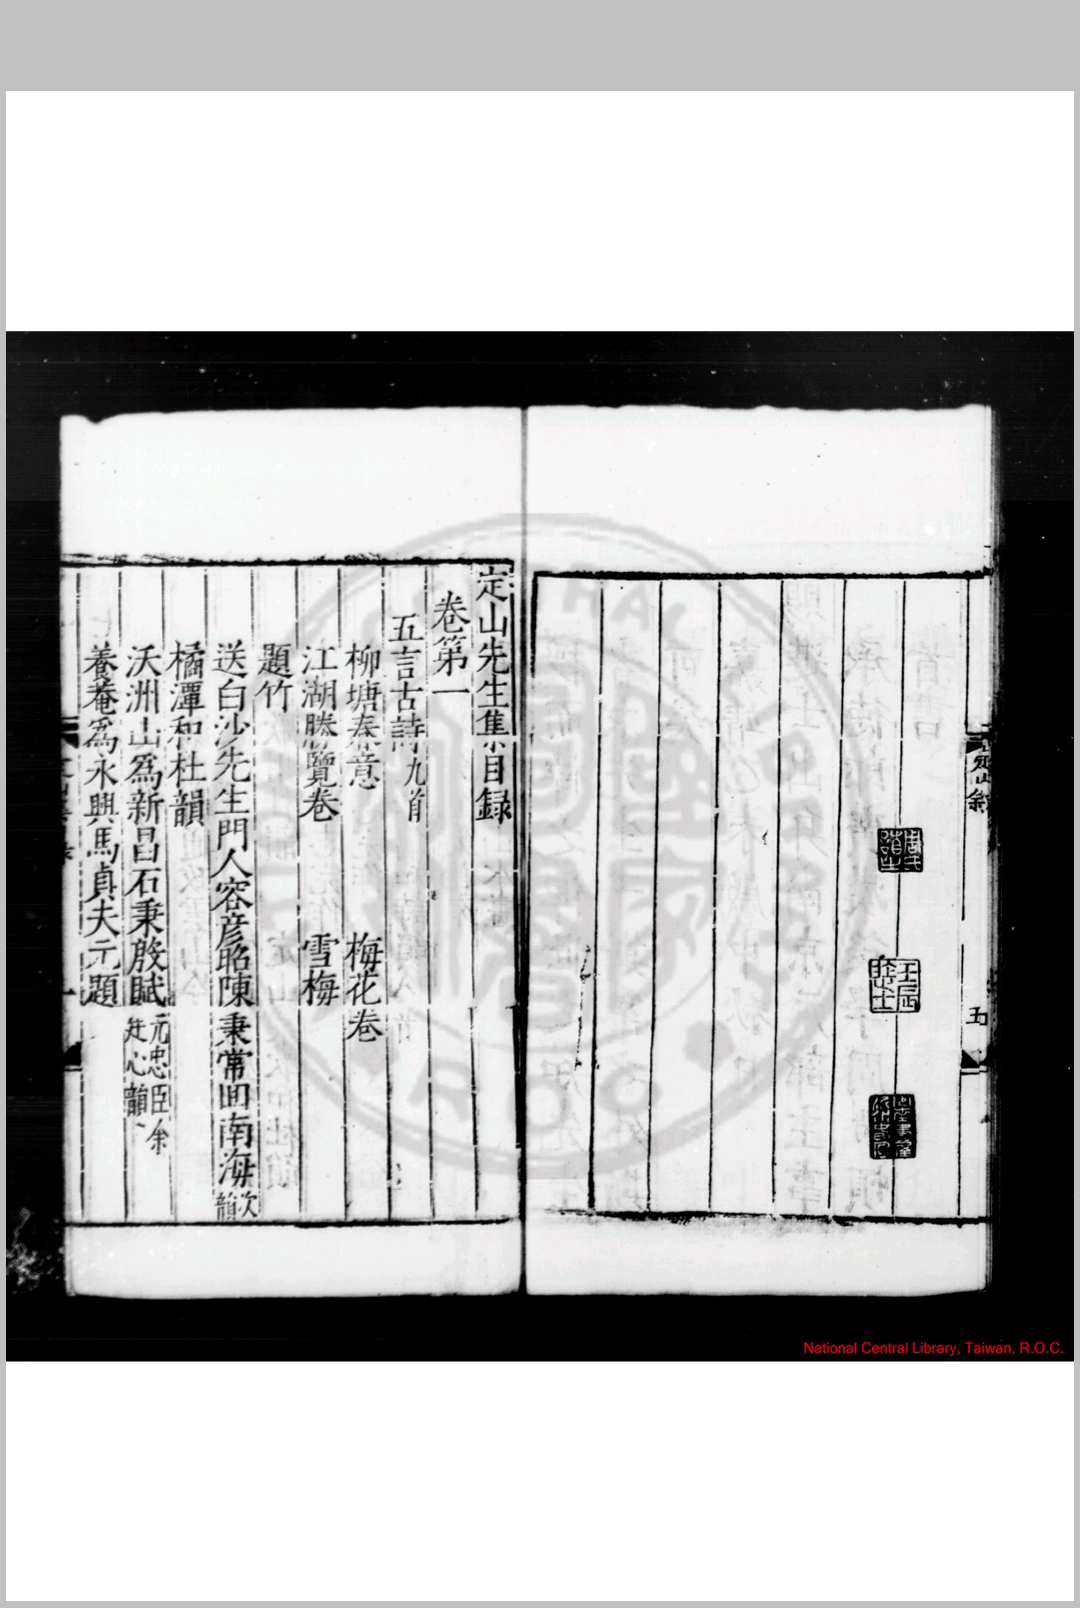 五
定山先生集目録
卷第一
五言古詩九首
柳塘春意 梅花卷
江湖勝覽卷 雪梅
題竹
送白沙先生門人容彥昭陳秉常囬南海次韻
橘潭和杜韻
沃洲山爲新昌石秉殷賦元忠臣余廷心韻
養菴爲永興馬貞夫元題
一
National Central Library, Taiwan, R.O.C.